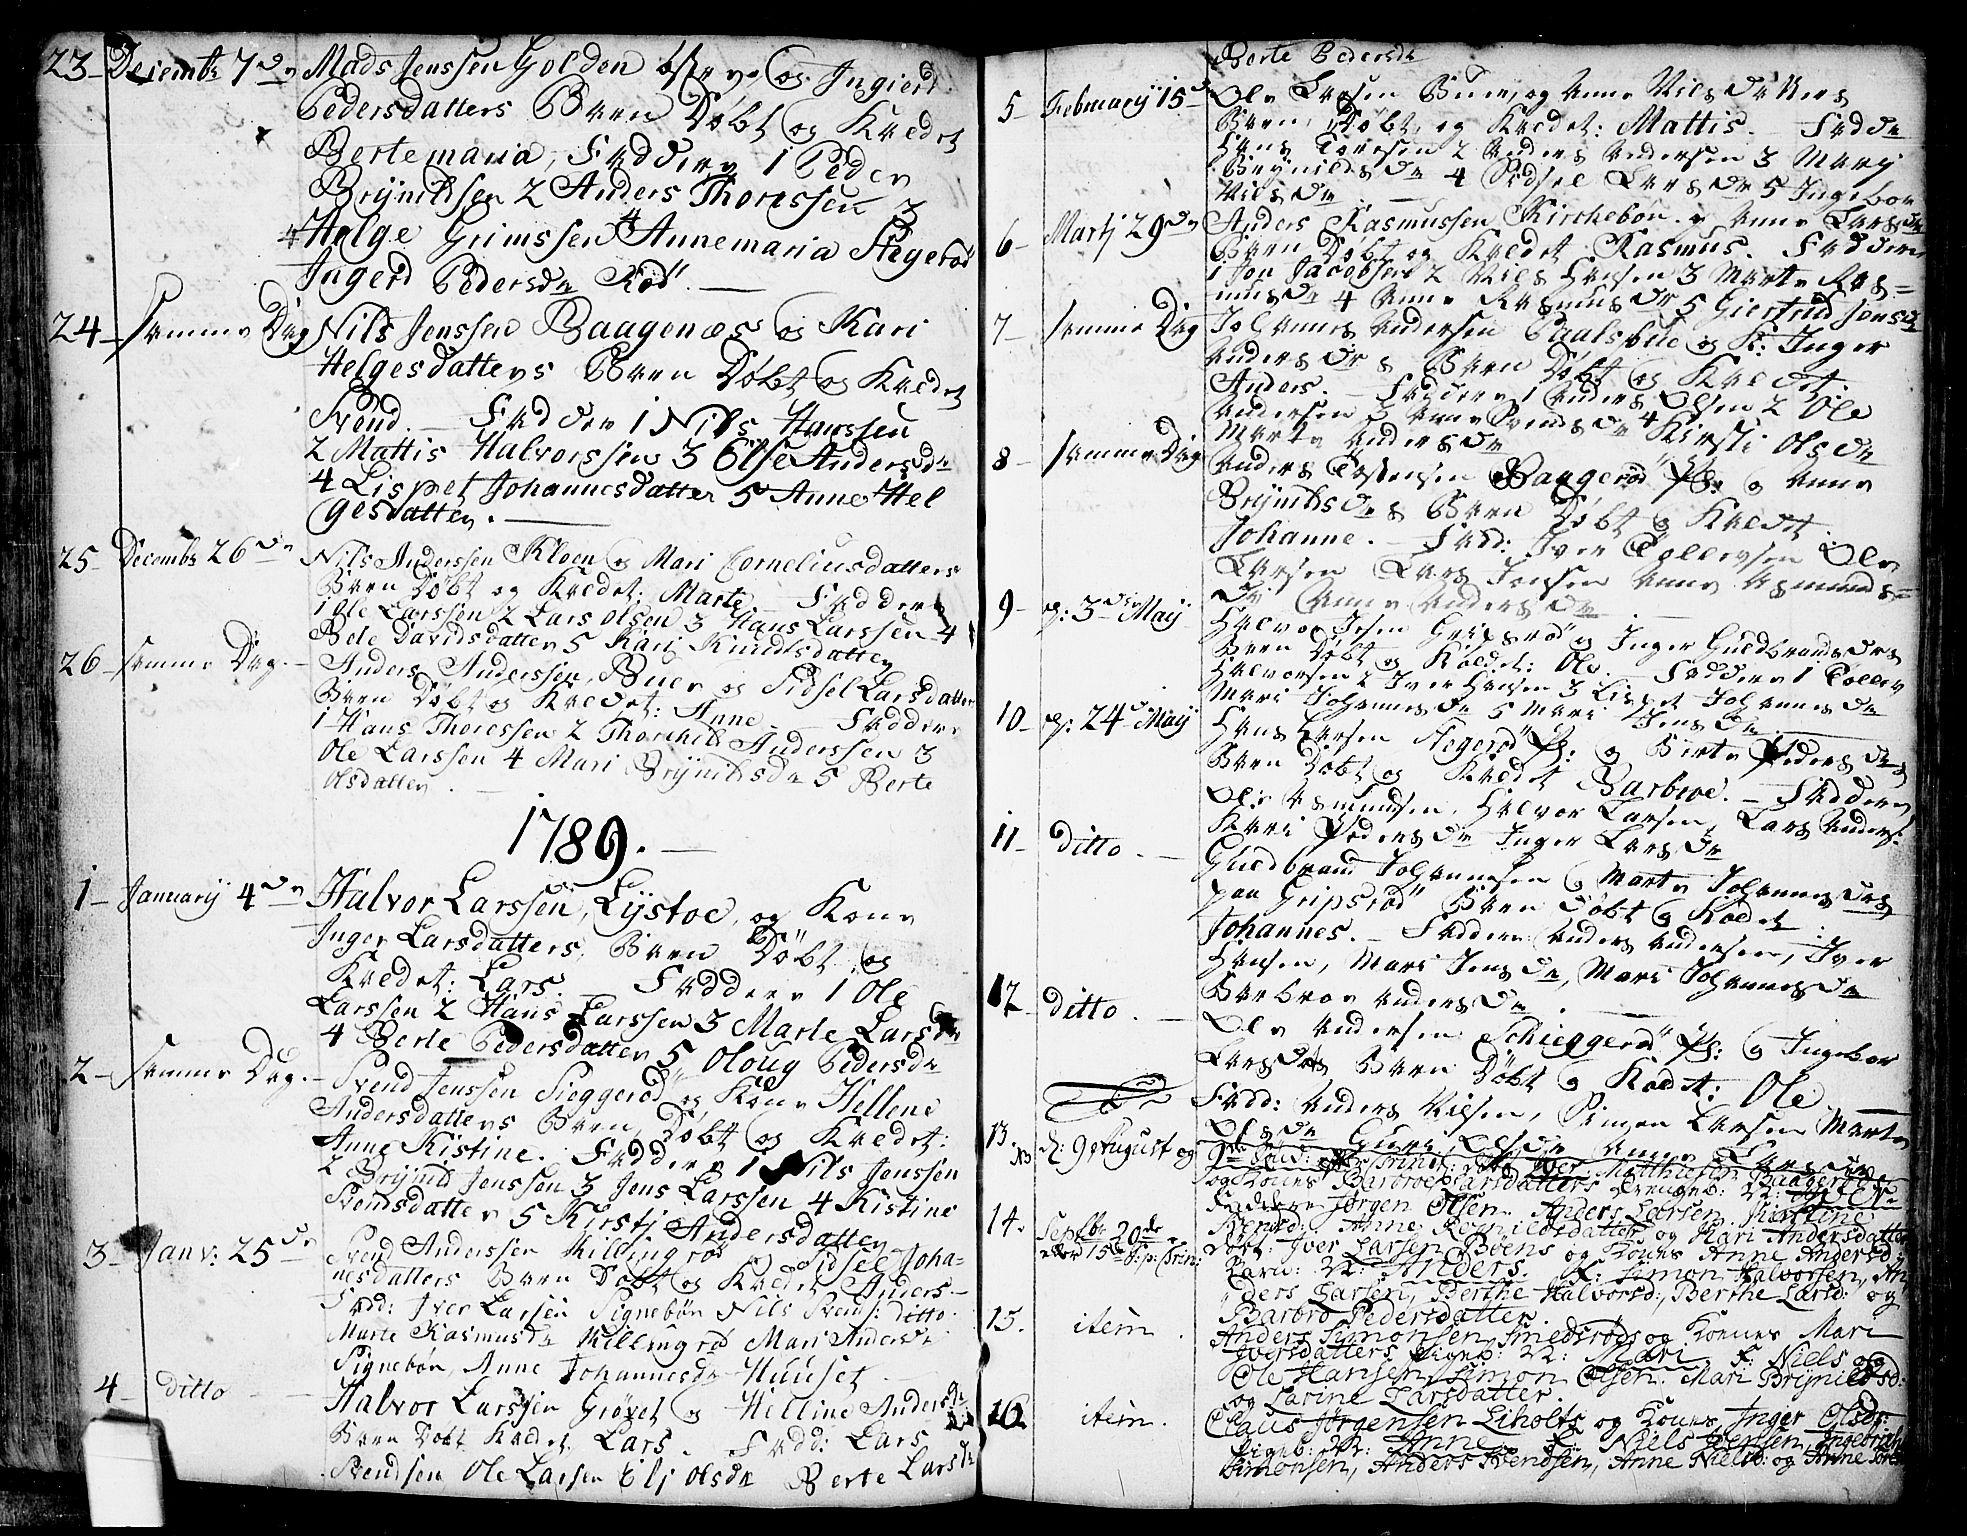 23 Decembr 7de Mads Jenssen Golden østre og Ingierd
Pedersdatters Barn Døbt og Kaldet
Bertemaria, Faddere 1 Peder
Brynildsen 2 Anders Thoressen 3
Helge Grimssen 4 Annemaria Stegerød
Ingerd Pedersdr Rød
24 samme Dag Nils Jenssen Baagenæs og Kari
Helgesdatters Barn Døbt og Kaldet
Svend. Faddere 1 Nils Hanssen
2 Mattis Halvorssen 3 Else Andersdr
4 Lispet Johannesdatter 5 Anne Hel
gesdatter.
25 Decembr 26de Nils Anderssen Kloen og Mari Corneliusdatters
Barn Døbt og Kaldet: Marte. Faddere
1 Ole Larssen 2 Lars Olsen 3 Hans Larssen 4
Bele Davidsdatter 5 Kari Knudsdatter
26 samme Dag. Anders Anderssen Buer og Sidsel Larsdatters
Barn Døbt og Kaldet: Anne. Faddere
1 Hans Thoressen 2 Thorchil Anderssen 3
Ole Larssen 4 Mari Brynildsdr 5 Berte
Olsdatter.
1789.
1 Januarij 4de Halvor Larssen Lystoe, og Kone
Inger Larsdatters, Barn Døbt og
Kaldet: Lars Faddere 1 Ole
Larssen 2 Hans Larssen 3 Marte Larsdr
4 Berte Pedersdatter 5 Oloug Pedersdr
2 samme Dag. Svend Jenssen Sieggerød og Kone Hellene
Andersdatters Barn Døbt og Kaldet:
Anne Kistine. Faddere 1 Nils Jenssen
2 Brynild Jenssen 3 Jens Larssen 4 Kistine
Svendsdatter 5 Kirstj Andersdatter
3 Janv: 25de Svend Anderssen Killingrød Sidsel Joha-
nesdatters Barn Døbt og Kaldet Anders
Fadd: Iver Larsen Signebøn Nils Svends: ditto.
Marte Rasmusdr Killingrød Mari Andersdr
Signebøn, Anne Johannesdr Huuset
4 ditto Halvor Larssen Grøvet og Helline Andersdr
Barn Døbt Kaldet Lars. Fadd: Lars
Svendsen Ole Larsen Elj Olsdr Berte Larsdr
Berte Pedersdr
5 Februarij 15de Ole Larsen Buer og Anne Nilsdatters
Barn Døbt og Kaldet: Mattis. Fadde
Hans Toresen 2 Anders Andersen 3 Marj
Brynildsdr 4 Sidsel Larsdr 5 Ingebor
Nilsdr
6 Martj 29de Anders Rasmussen Kirchebøn og Anne Larsdr
Barn Døbt og Kaldet Rasmus. Faddere
1 Jon Jacobsen 2 Nils Hansen 3 Marte Ras=
musdr 4 Anne Rasmusdr 5 Giertrud Jensdr
7 samme Dag Johannes Andersen Paalsbue og K: Inger
Andersdrs Barn Døbt og Kaldet:
Anders. Faddere 1 Anders Olsen 2 Ole
Andersen 3 Anne Svendsdr 4 Kirsti Olsdr
Marte Andersdr
8 samme Dag Anders Torstensen Baagerød Ps: og Anne
Brynildsdrs Barn Døbt og Kaldet
Johanne. Fadd: Iver Tollevsen Ole
Larsen Lars Jensen Anne Asmunds=
dr Anne Andersdr
9 d: 3die Maij Halvor Gripsrød og Inger Guldbrandsdrs
Barn Døbt og Kaldet: Ole. Faddere 1 Tollev
Halvorsen 2 Iver Hansen 3 Lispet Johannesdr
Mari Johannesdr 5 Mari Jensdr
10 d: 24de Maij Hans Larsen Stegerød Ps: og Birte Pedersdrs
Barn Døbt og Kaldet Barbroe. Faddere
Ole Asmundsen, Halvor Larsen, Lars Anders:
Kari Pedersdr Inger Larsdr
11 ditto Guldbrand Johannesen og Marte Johannesdrs
paa Gripsrød Barn Døbt og Kaldet
Johannes. Faddere Anders Andersen, Iver
Hansen, Mari Jensdr, Mari Johannesdr
Barbroe Andersdr
12 ditto. Ole Andersen Schieggerød Ps: og Ingebor
Larsdrs Barn Døbt og Kaldet: Ole
Fadd: Anders Nilsen, Simen Larsen Marte
Olsdr Guri Olsdr Anne Larsdr
13. d: 9 August og Iver Matthiesen Baagerøds
og Kones Barbroe Larsdatters Drengeb: N:
Faddere Jørgen Olsen Anders Larsen, Kirstene
Svendsd: Anne Reynildsdatter og Kari Andersdatter
14. Septbr 20de Døbt: Iver Larsen Bøens og Kones Anne Andersd:
Barn: N: Anders. F: Simon Halvorsen, An
ders Larsen, Berthe Halvorsd:, Berthe Larsd: og
Barbro Pedersdatter.
15. item. Anders Simonsen Smedsrøds og Kones Mari
Iversdatters Pigeb: N: Mari F: Niels og
Ole Hansen, Simon Olsen. Mari Brynildsd:
og Larine Larsdatter.
16 item. Claus Jørgensen Liholts og Kones Inger Olsdr:
Pigeb: N: Anne F: Niels Iversen, Ingebricht
Simonsen, Anders Svendsen, Anne Nielsd: og Anne